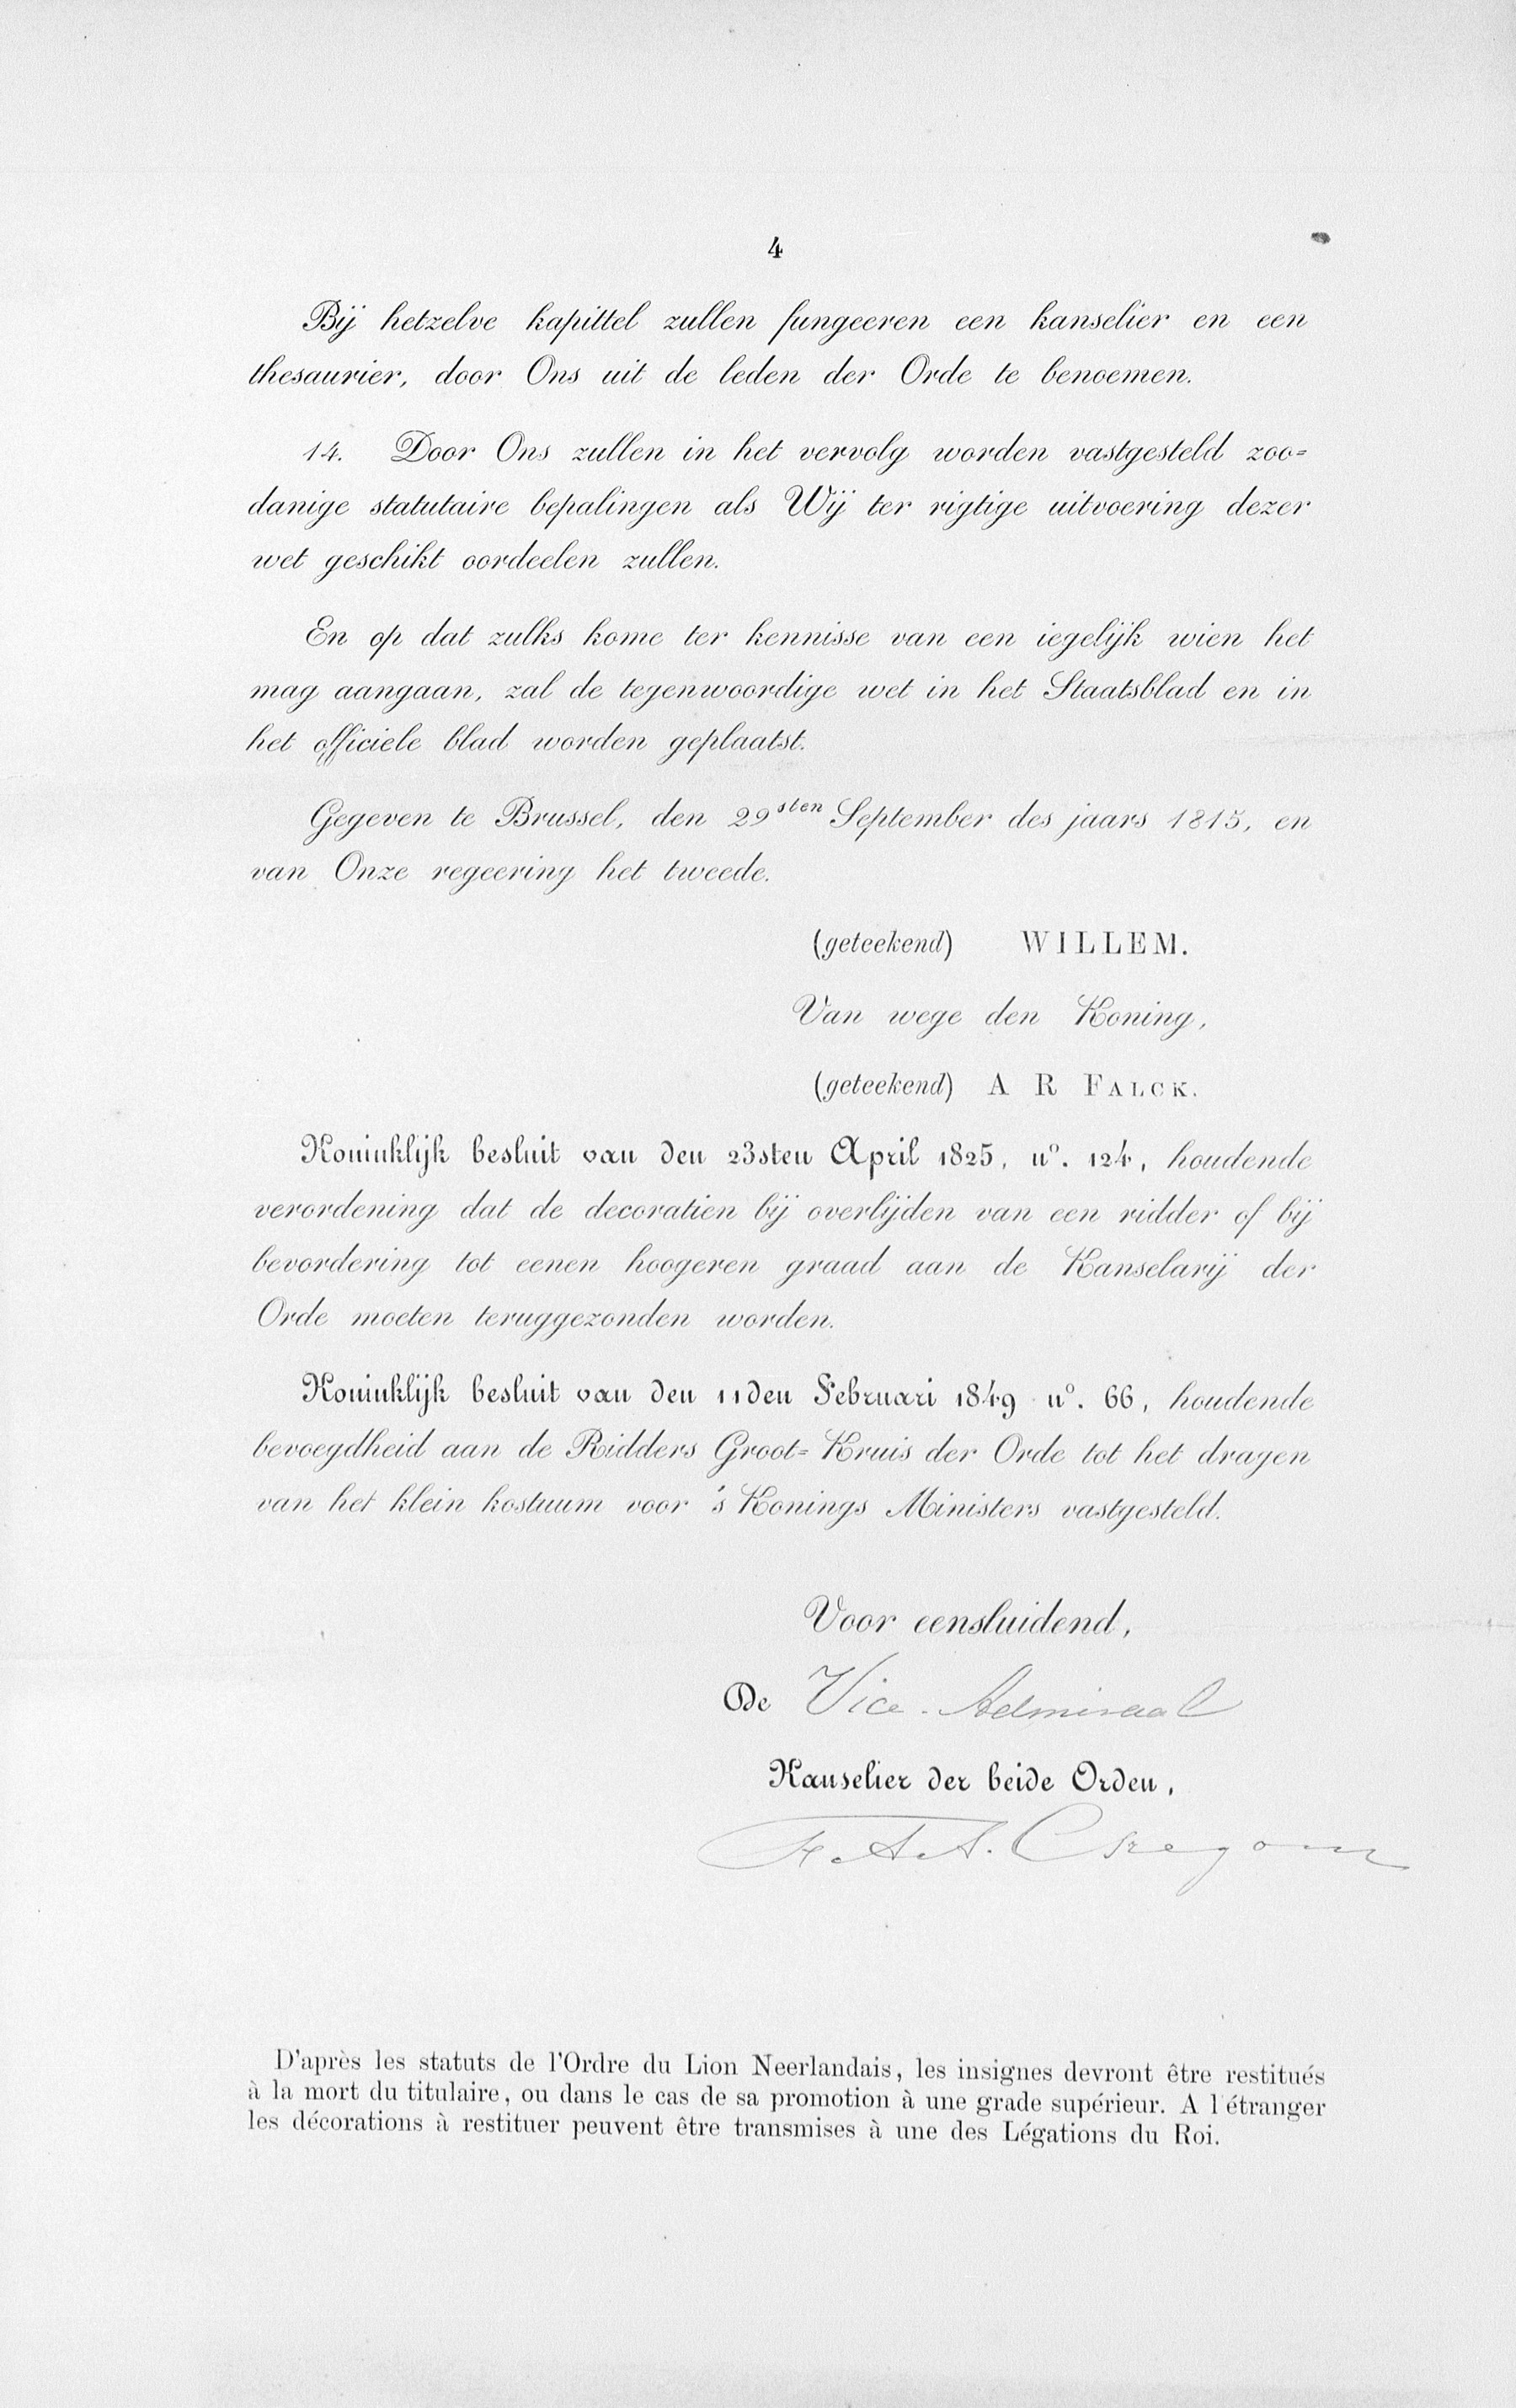 4
Bij hetzelve kapittel zullen fungeeren een kanselier en een
thesaurier, door Ons uit de leden der Orde te benoemen.
14. Door Ons zullen in het vervolg worden vastgesteld zoo=
danige statutaire bepalingen als Wij ter rigtige uitvoering dezer
wet geschikt oordeelen zullen.
En op dat zulks kome ter kennisse van een iegelijk wien het
mag aangaan, zal de tegenwoordige wet in het Staatsblad en in
het officiele blad worden geplaatst.
Gegeven te Brussel, den 29sten September des jaars 1815, en
van Onze regeering het tweede.
(geteekend) WILLEM.
Van wege den Koning,
(geteekend) A R FALCK.
Koninklijk besluit van den 23sten April 1825, no. 124, houdende
verordening dat de decoratien bij overlijden van een ridder of bij
bevordering tot eenen hoogeren graad aan de Kanselarij der
Orde moeten teruggezonden worden.
Koninklijk besluit van den 11den Februari 1849 no. 66, houdende
bevoegdheid aan de Ridders Groot=Kruis der Orde tot het dragen
van het klein kostuum voor 's Konings Ministers vastgesteld.
Voor eensluidend,
De Vice-Admiraal
Kanselier der beide Orden,
D'après les statuts de l'Ordre du Lion Neerlandais, les insignes devront être restitués
à la mort du titulaire, ou dans le cas de sa promotion à une grade supérieur. A l'étranger
les décorations à restituer peuvent être transmises à une des Légations du Roi.